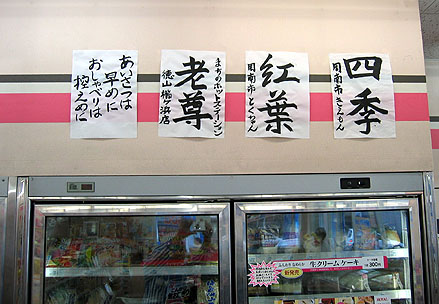 四季
周南市 さえちゃん
紅葉
周南市 とくちゃん
老尊
まちのホットステーション
徳山櫛ヶ浜店
あいさつは
早めに
おしゃべりは
控えめに
生クリームケーキ
新発売
300円